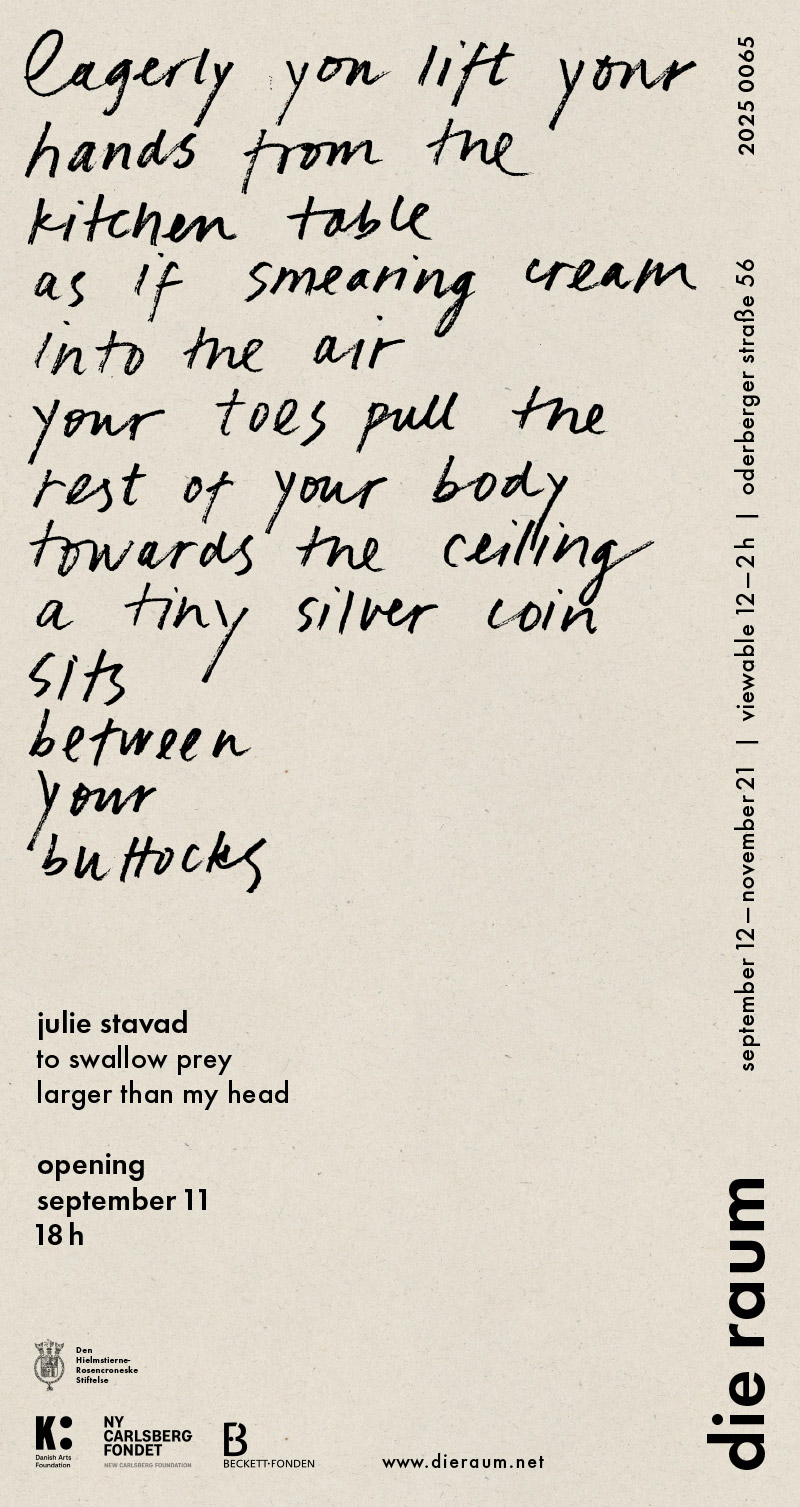 eagerly you lift your
hands from the
kitchen table
as if smearing cream
into the air
your toes pull the
rest of your body
towards the ceiling
a tiny silver coin
sits
between
your
buttocks
julie stavad
to swallow prey
larger than my head
opening
september 11
18 h
Den
Hielmstierne-
Rosencroneske
Stiftelse
K:
Danish Arts
Foundation
NY
CARLSBERG
FONDET
NEW CARLSBERG FOUNDATION
B
BECKETT-FONDEN
www.dieraum.net
die raum
september 12 – november 21 | viewable 12 – 2 h | oderberger straße 56
2025 0065